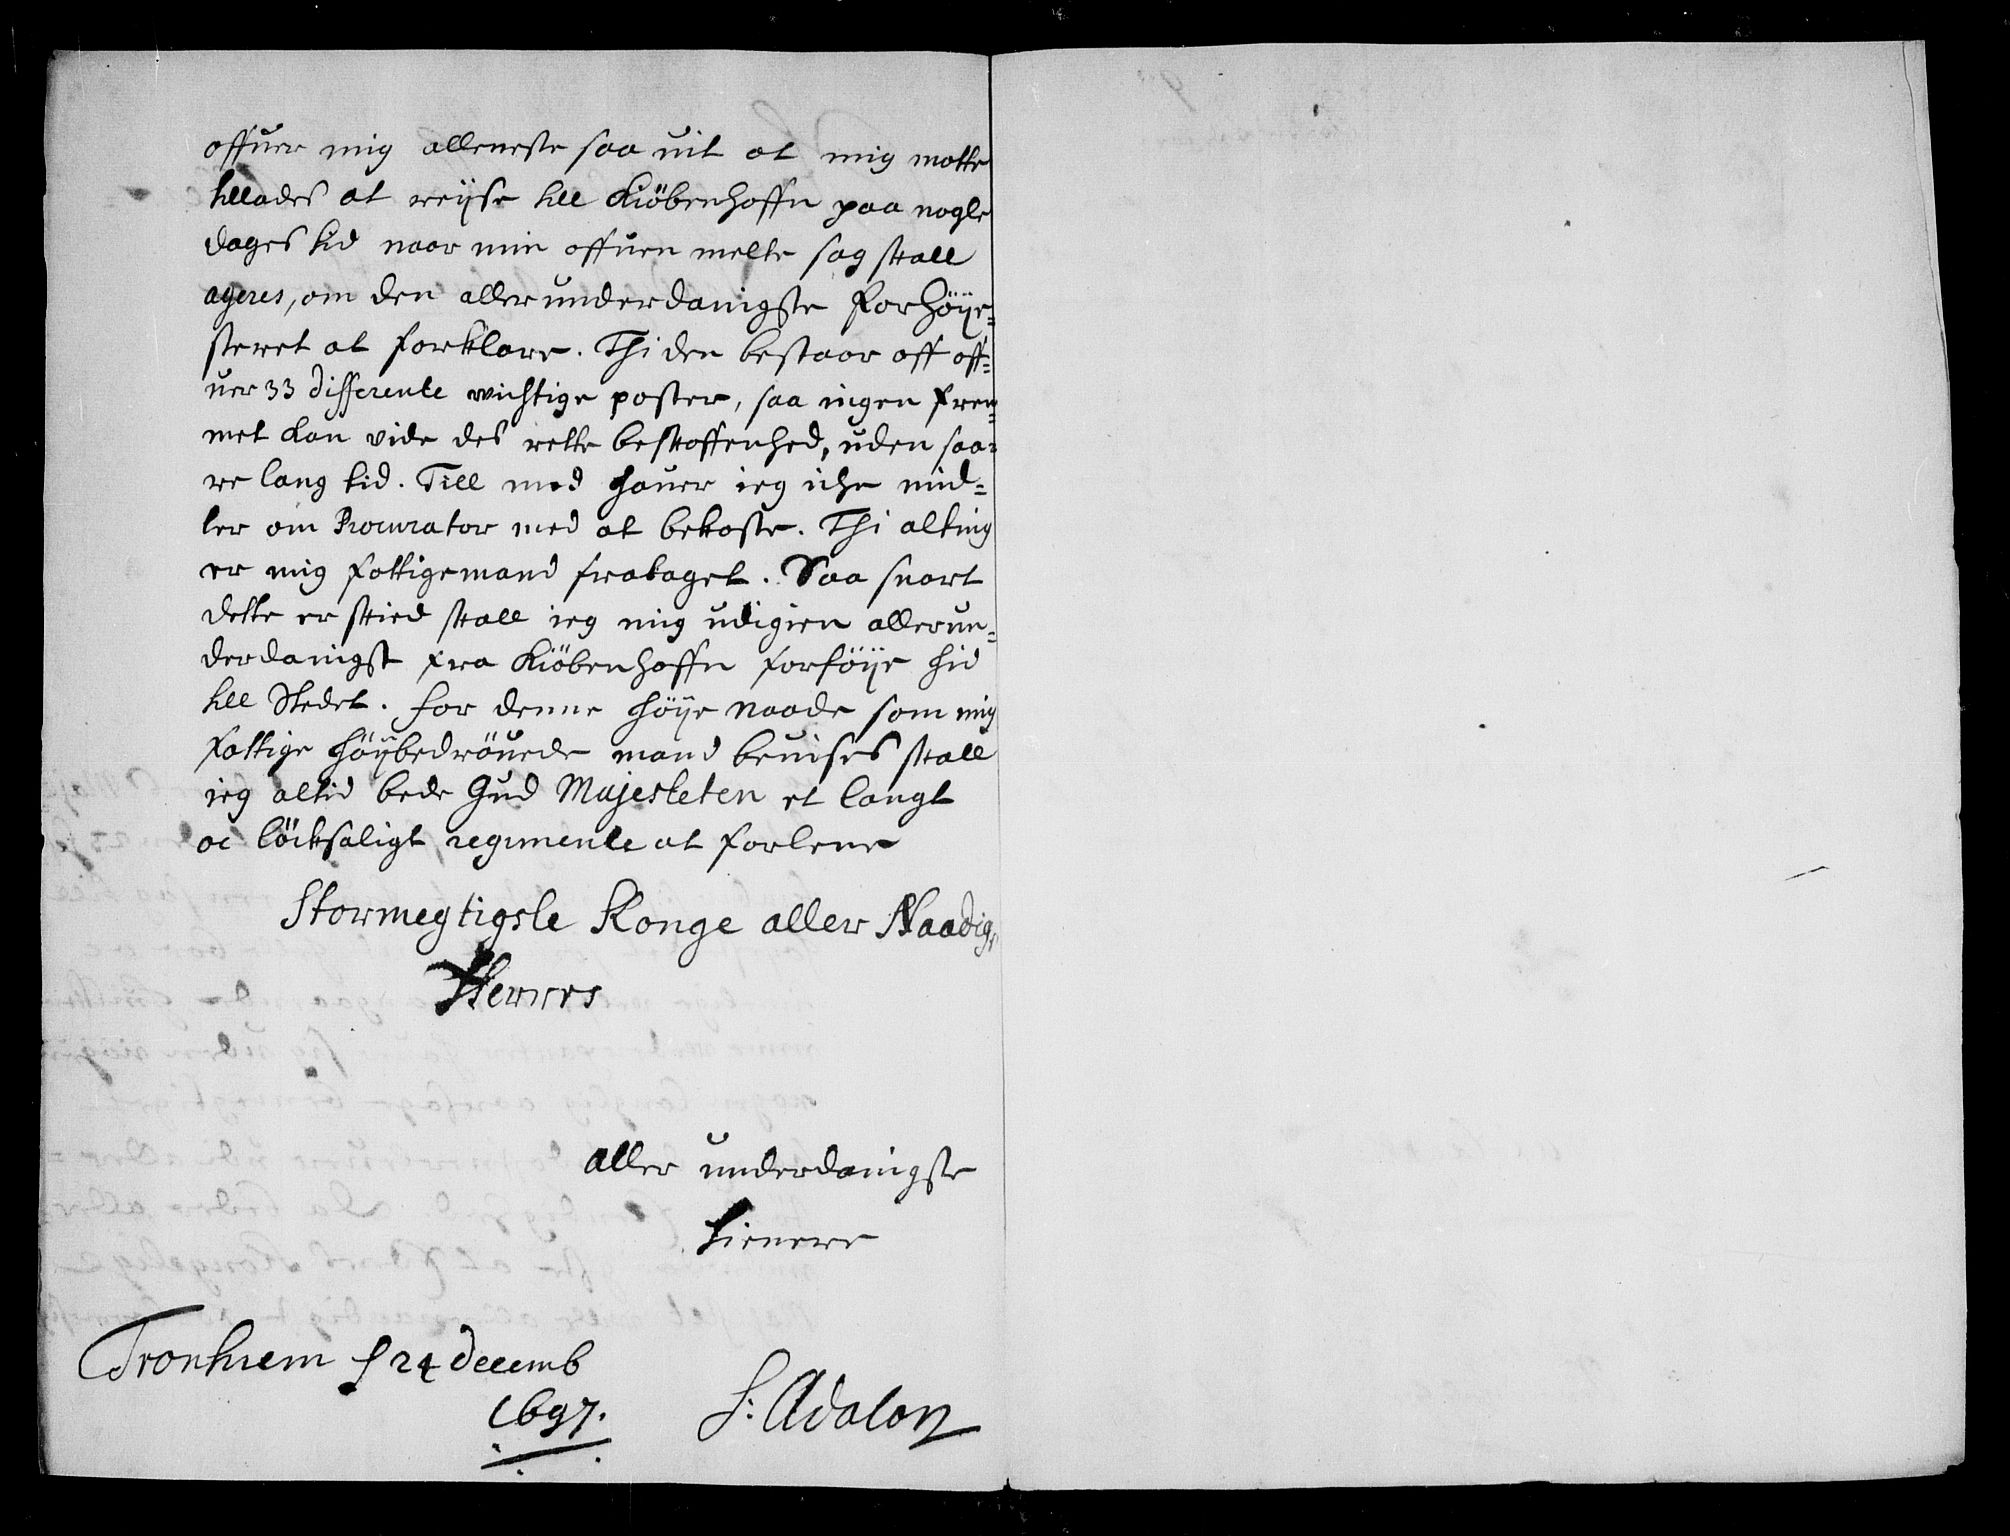 offuer mig alleneste saa uit at mig motte
tillades at reijse till Kiöbenhoffn paa nogle
dages tid naar min offuen melte sag skall
ageres, om den allerunderdanigste for Höije=
steret at forklare. Thi den bestaar aff off=
uer 33 differente wichtige poster, saa ingen frem=
met kan vide des rette beskaffenhed, uden saa=
re lang tid. Till med hauer ieg iche mid=
ler om Procurator med at bekoste. Thi alting
er mig fattigemand frataget. Saa snart
dette er skied skall ieg mig udigien allerun=
derdanigst fra Kiöbenhaffn forföije hid
till Stedet. for denne höije naade som mig
fattige höijbedröuede mand beuises skall
ieg altid bede Gud Majesteten et langt
oc löcksaligt regimente at forlene
Stormegtigste Konge aller Naadigs
Herres
aller underdanigste
tienere
Tronhiem f 24 decemb
1697.
S: Adalon